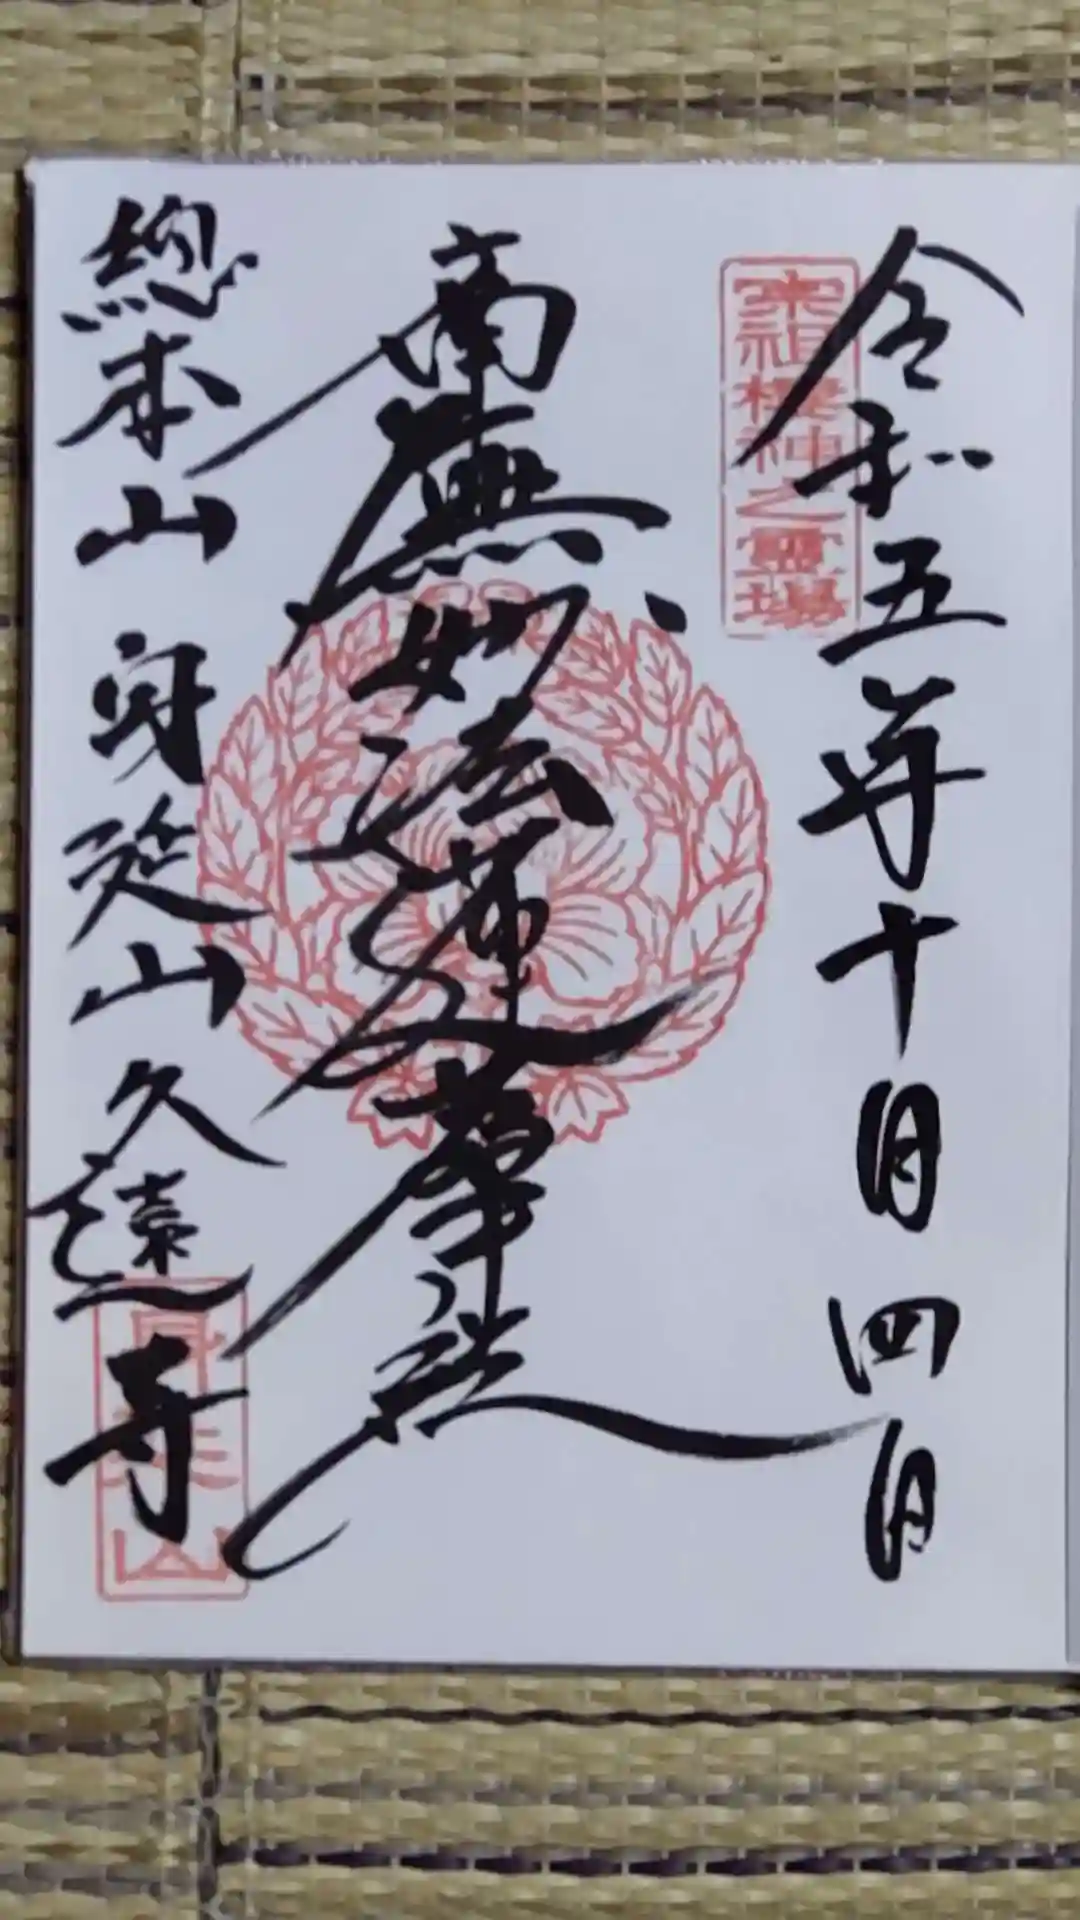 令和五年十月四日
宗祖棲神之霊場
南無妙法蓮華経
總本山 身延山 久遠寺
身延山